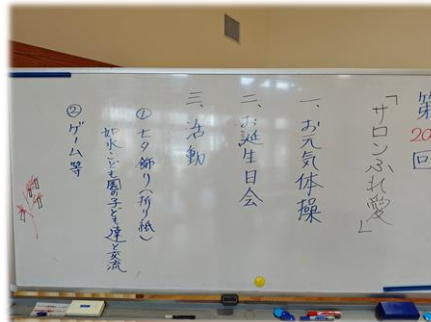 第20回
「サロンふれ愛」
一、お元気体操
二、お誕生日会
三、活動
① 七夕飾り(折り紙)
如水こども園の子ども達と交流
② ゲーム等